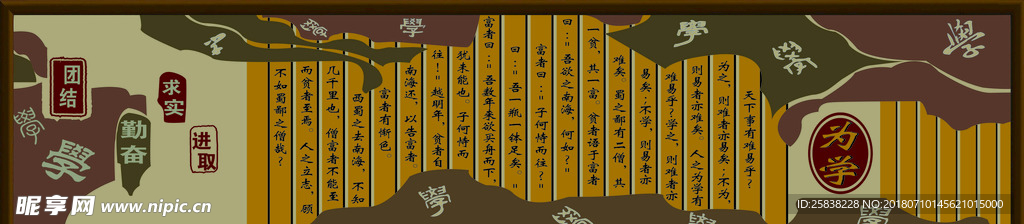 为学
天下事有难易乎？
为之，则难者亦易矣；不为，
则易者亦难矣。人之为学有
难易乎？学之，则难者亦
易矣；不学，则易者亦
难矣。蜀之鄙有二僧，其
一贫，其一富。贫者语于富者
曰："吾欲之南海，何如？"
富者曰："子何恃而往？"
曰："吾一瓶一钵足矣。"
富者曰："吾数年来欲买舟而下，
犹未能也。子何恃而
往！"越明年，贫者自
南海还，以告富者
富者有惭色。
西蜀之去南海，不知
几千里也，僧富者不能至
而贫者至焉。人之立志，顾
不如蜀鄙之僧哉？
进取
求实
勤奋
团结
學
學
學
學
學
學
學
學
昵享网 www.nipic.cn
ID:25838228 NO:20180710145621015000